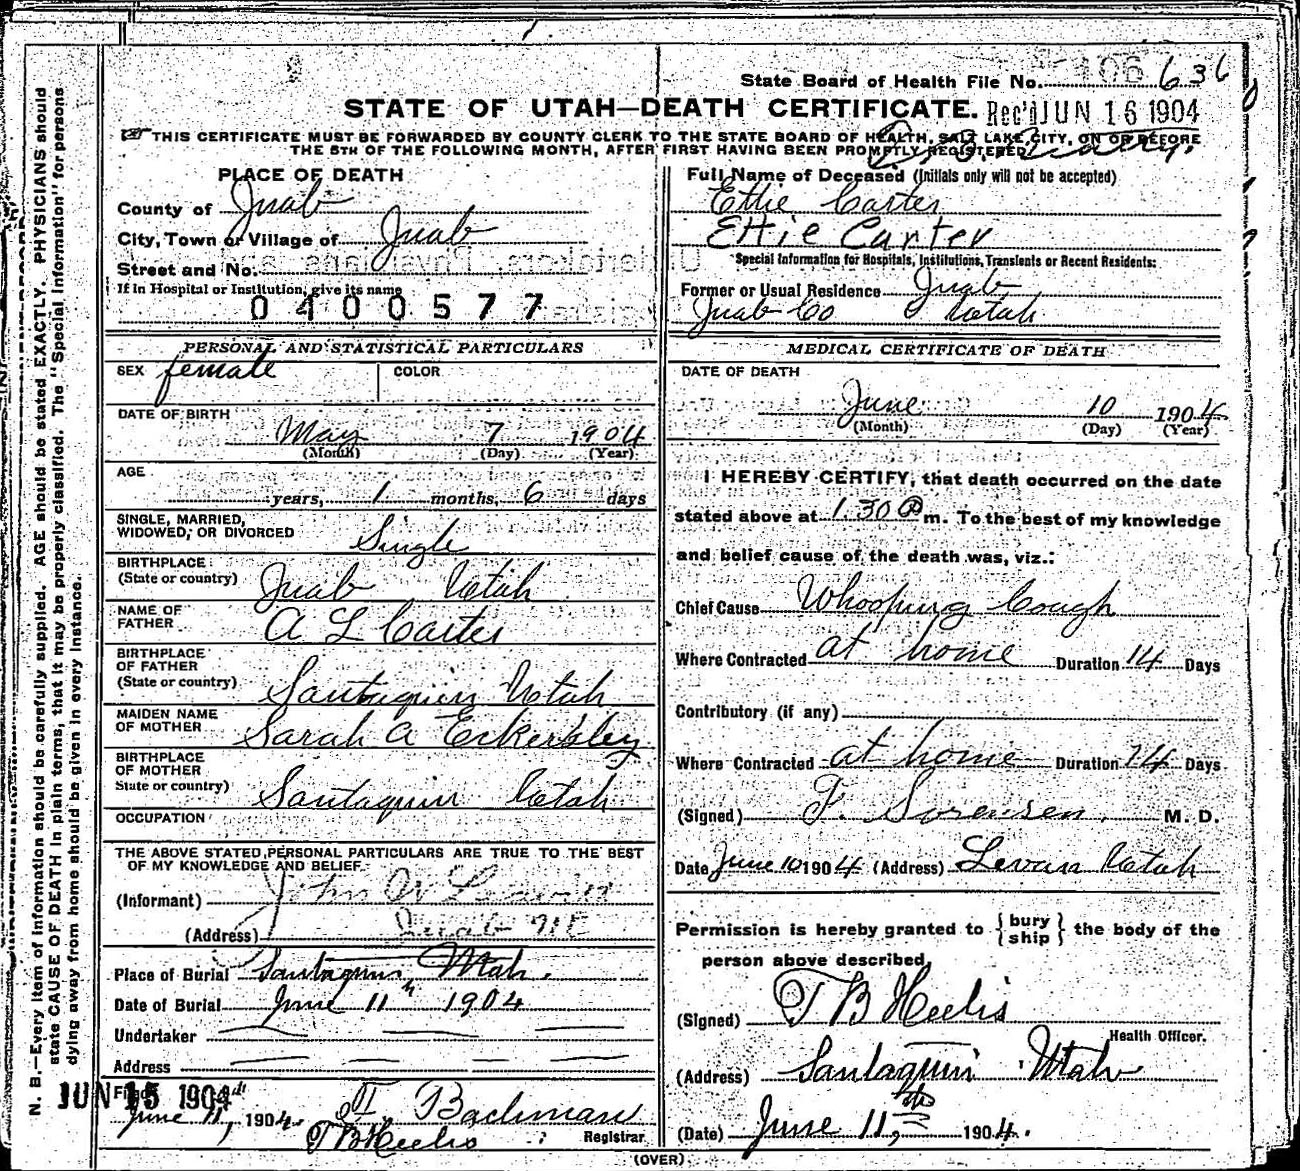 State Board of Health File No. 636
STATE OF UTAH—DEATH CERTIFICATE.
Rec'd JUN 16 1904
THIS CERTIFICATE MUST BE FORWARDED BY COUNTY CLERK TO THE STATE BOARD OF HEALTH, SALT LAKE CITY, ON OR BEFORE
THE 5TH OF THE FOLLOWING MONTH, AFTER FIRST HAVING BEEN PROMPTLY REGISTERED.
PLACE OF DEATH
County of Juab
City, Town or Village of Juab
Street and No.
If in Hospital or Institution, give its name
0400577
PERSONAL AND STATISTICAL PARTICULARS
SEX female COLOR
DATE OF BIRTH
May 7 1904
(Month) (Day) (Year)
AGE
years, 1 months, 6 days
SINGLE, MARRIED,
WIDOWED, OR DIVORCED Single
BIRTHPLACE
(State or country) Juab Utah
NAME OF
FATHER A L Carter
BIRTHPLACE
OF FATHER
(State or country) Santaquin Utah
MAIDEN NAME
OF MOTHER Sarah A Eckersley
BIRTHPLACE
OF MOTHER
State or country) Santaquin Utah
OCCUPATION
THE ABOVE STATED PERSONAL PARTICULARS ARE TRUE TO THE BEST
OF MY KNOWLEDGE AND BELIEF.
(Informant) John W
(Address) Juab
Place of Burial Santaquin Utah.
Date of Burial June 11th 1904
Undertaker
Address
Filed
JUN 15 1904
June 11, 1904. Bachman
T B Heelis Registrar
Full Name of Deceased (Initials only will not be accepted)
Ettie Carter
Ettie Carter
Special Information for Hospitals, Institutions, Transients or Recent Residents:
Former or Usual Residence Juab
Juab Co Utah
MEDICAL CERTIFICATE OF DEATH
DATE OF DEATH
June 10 1904
(Month) (Day) (Year)
I HEREBY CERTIFY, that death occurred on the date
stated above at 1.30 P m. To the best of my knowledge
and belief cause of the death was, viz.:
Chief Cause Whooping Cough
Where Contracted at home Duration 14 Days
Contributory (if any)
Where Contracted at home Duration 14 Days
(Signed) F. Sorensen. M. D.
Date June 10 1904 (Address) Levan Utah
Permission is hereby granted to {bury
ship} the body of the
person above described,
(Signed) T B Heelis
Health Officer.
(Address) Santaquin Utah
(Date) June 11th, 1904.
(OVER)
N. B.—Every item of information should be carefully supplied. AGE should be stated EXACTLY. PHYSICIANS should
state CAUSE OF DEATH in plain terms, that it may be properly classified. The "Special Information" for persons
dying away from home should be given in every instance.